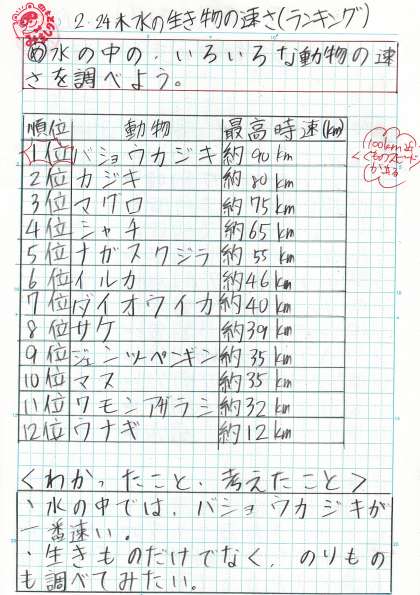 2.24木水の生き物の速さ(ランキング)
め水の中の、いろいろな動物の速
さを調べよう。
順位 動物 最高時速(km)
1位 バショウカジキ 約90km
2位 カジキ 約80km
3位 マグロ 約75km
4位 シャチ 約65km
5位 ナガスクジラ 約55km
6位 イルカ 約46km
7位 ダイオウイカ 約40km
8位 サケ 約39km
9位 ジェンツーペンギン 約35km
10位 マス 約35km
11位 ワモンアザラシ 約32km
12位 ウナギ 約12km
100km近
くものスピード
がある
<わかったこと、考えたこと>
・水の中では、バショウカジキが
一番速い。
・生きものだけでなく、のりもの
も調べてみたい。